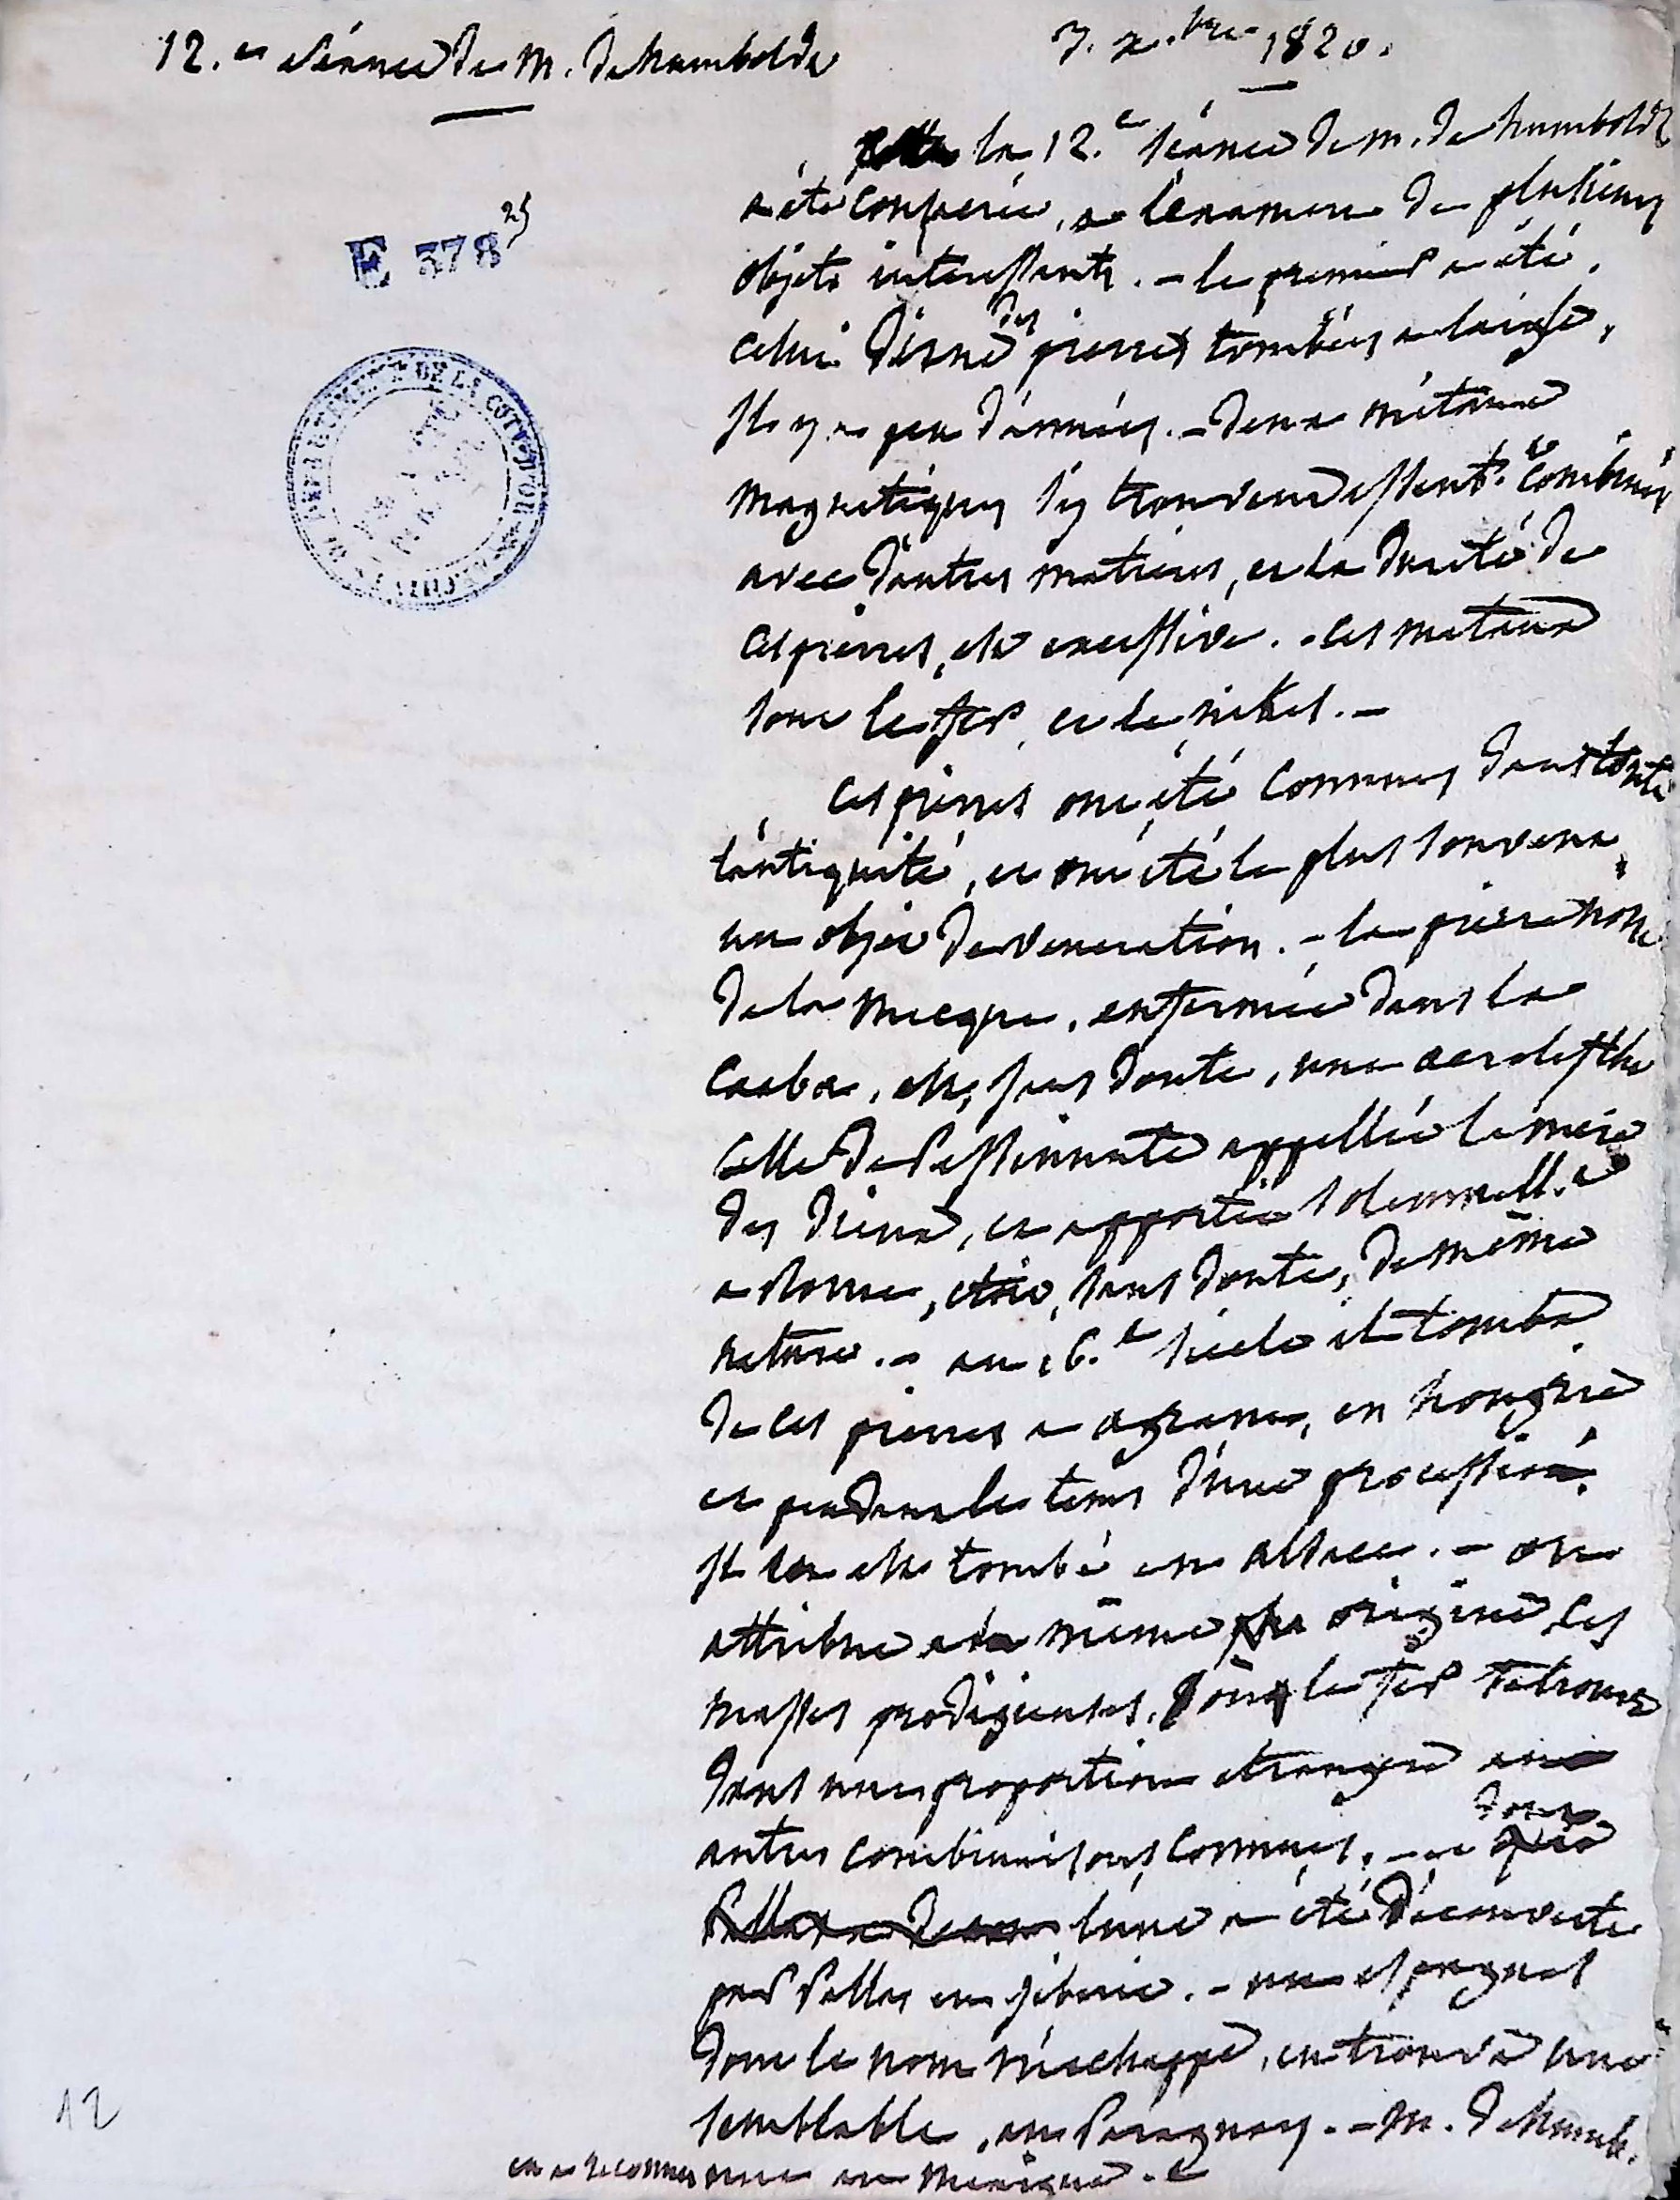 12.e séance de M. de humboldt
7. x.bre 1820.
E 378 25
DEPARTEMENT DE LA COTE D'OR
la 12.e séance de m. de humboldt
a été consacrée, a l'examen de plusieurs
objets interessants. - le premier a été,
celui des pierres tombées a laigle,
il y a peu d'années. - deux métaux
magnetiques s'y trouvent essent.t combinés
avec d'autres matieres, et la dureté de
ces pierres, est excessive. - ces metaux
sont le fer, et le nikel. -
ces pierres ont été connues dans toute
l'antiquité, et ont été le plus souvent,
un objet de veneration. - la pierre noire
de la mecque, enfermée dans la
caaba, est, sans doute, une aerolythe
celle de Pessinunte appellée la mère
des dieux, et apportée solemnell.t
a Rome, étoit, sans doute, de même
nature. - au 16.e siecle il tomba
de ces pierres a agram, en hongrie
et pendant le tems d'une procession,
il en est tombé en alsace. - on
attribue a la même origine ces
masses prodigieuses, où le fer se trouve
dans une proportion etrangere aux
autres combinaisons connues. - dont
l'une a été découverte
par Pallas en siberie. - un espagnol
dont le nom m'echappe, en trouva une
semblable, au Paraguay. - M. de humb.
en a reconnu une au mexique. -
12